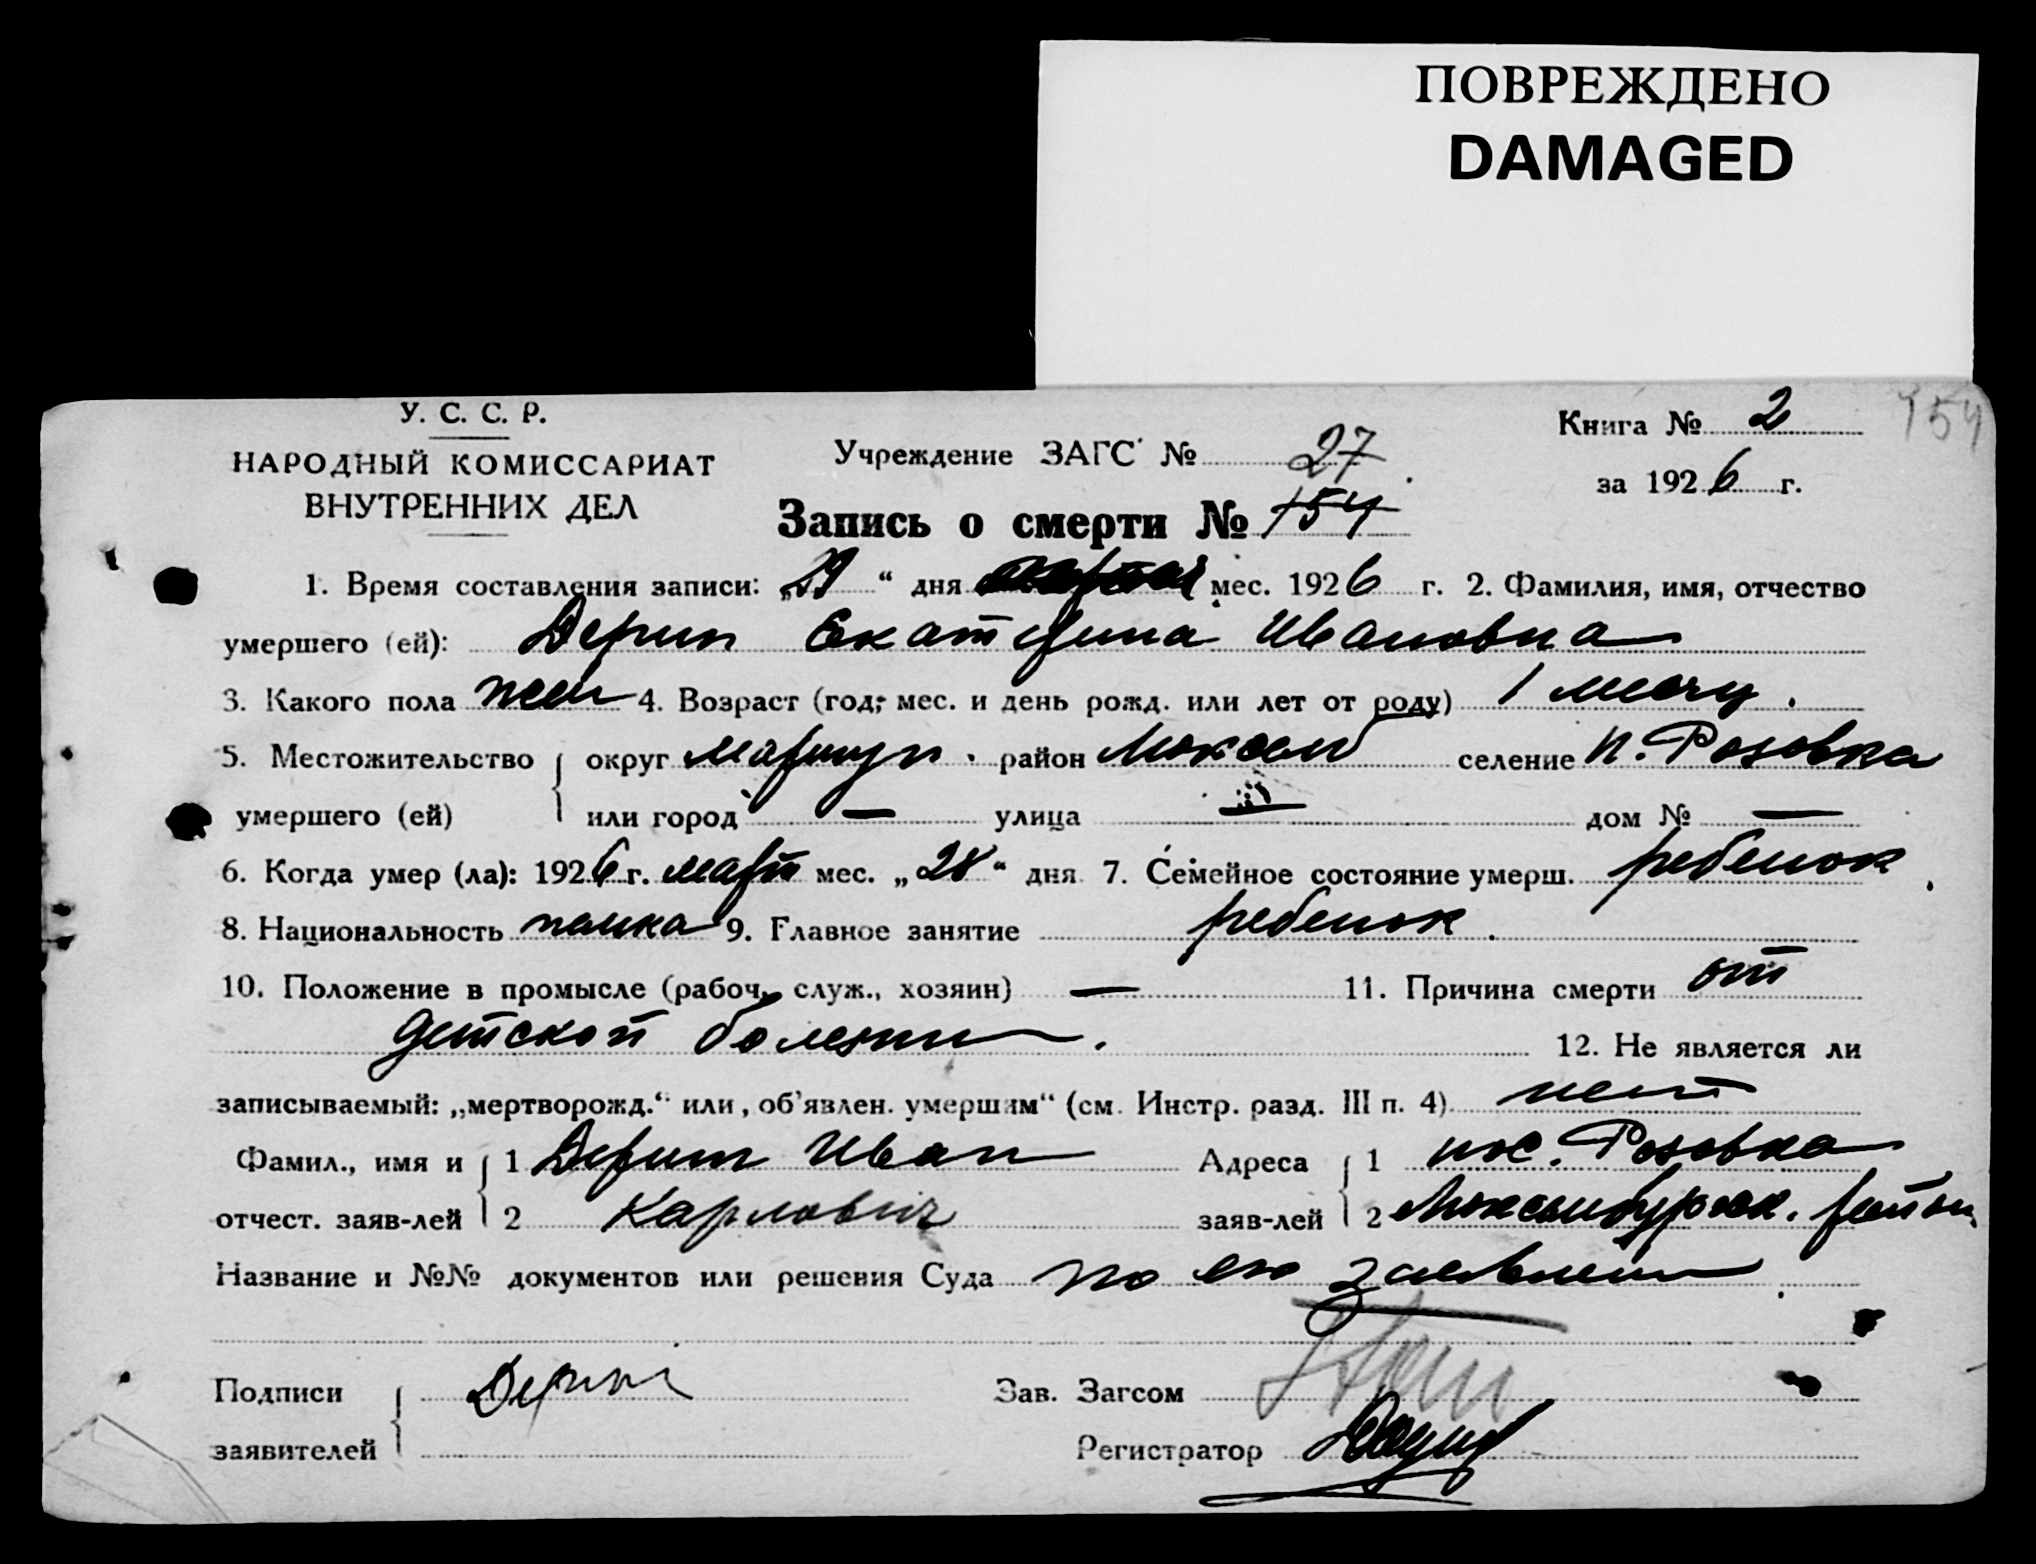 ПОВРЕЖДЕНО
DAMAGED
У. С. С. Р.
НАРОДНЫЙ КОМИССАРИАТ
ВНУТРЕННИХ ДЕЛ
Учреждение ЗАГС № 27
Книга № 2
154
за 1926 г.
Запись о смерти № 154
1. Время составления записи: „29“ дня мес. 1926 г. 2. Фамилия, имя, отчество
умершего (ей): Дерин Екатерина Ивановна
3. Какого пола жен 4. Возраст (год, мес. и день рожд. или лет от роду) 1 месяц.
5. Местожительство округ Мариуп. район Люксемб селение п. Розовка
умершего (ей) или город — улица — дом № —
6. Когда умер (ла): 1926 г. март мес. „28“ дня 7. Семейное состояние умерш. ребенок.
8. Национальность немка 9. Главное занятие ребенок.
10. Положение в промысле (рабоч., служ., хозяин) — 11. Причина смерти от
детской болезни. 12. Не является ли
записываемый: „мертворожд.“ или „об'явлен. умершим“ (см. Инстр. разд. III п. 4) нет
Фамил., имя и 1 Дерин Иван Адреса 1 пос. Розовка
отчест. заяв-лей 2 Карлович заяв-лей 2 Люксембургск. район
Название и №№ документов или решения Суда по его заявлению.
Подписи Дерин Зав. Загсом
заявителей Регистратор